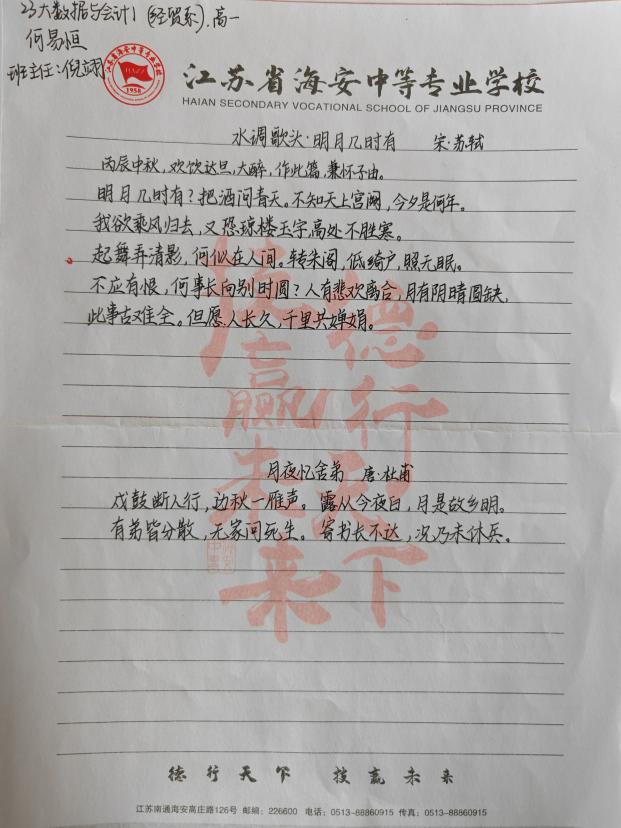 23大数据与会计1(经贸系),高一
何易恒
班主任:倪翊
江苏省海安中等专业学校
HAIAN SECONDARY VOCATIONAL SCHOOL OF JIANGSU PROVINCE
1958
水调歌头·明月几时有 宋·苏轼
丙辰中秋,欢饮达旦,大醉,作此篇,兼怀子由。
明月几时有?把酒问青天。不知天上宫阙,今夕是何年。
我欲乘风归去,又恐琼楼玉宇,高处不胜寒。
起舞弄清影,何似在人间。转朱阁,低绮户,照无眠。
不应有恨,何事长向别时圆?人有悲欢离合,月有阴晴圆缺,
此事古难全。但愿人长久,千里共婵娟。
德行天下
技赢未来
月夜忆舍弟 唐·杜甫
戍鼓断人行,边秋一雁声。露从今夜白,月是故乡明。
有弟皆分散,无家问死生。寄书长不达,况乃未休兵。
德行天下 技赢未来
江苏南通海安高庄路126号 邮编:226600 电话:0513-88860915 传真:0513-88860915